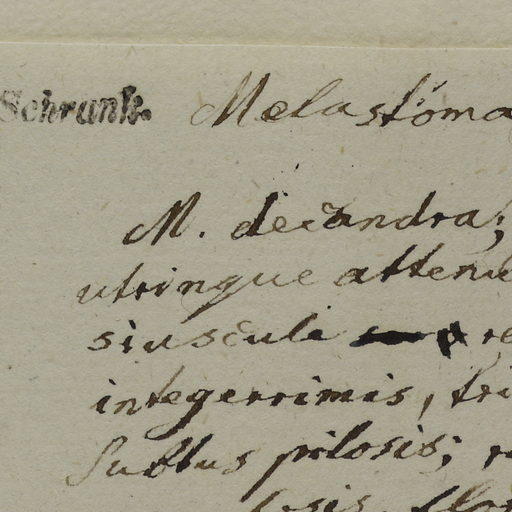 Schrank. Melastöma
M. decandra;
utrinque attenu
siuscŭli re
integerrimis, tri
subtus pilosis; r
losis. flor